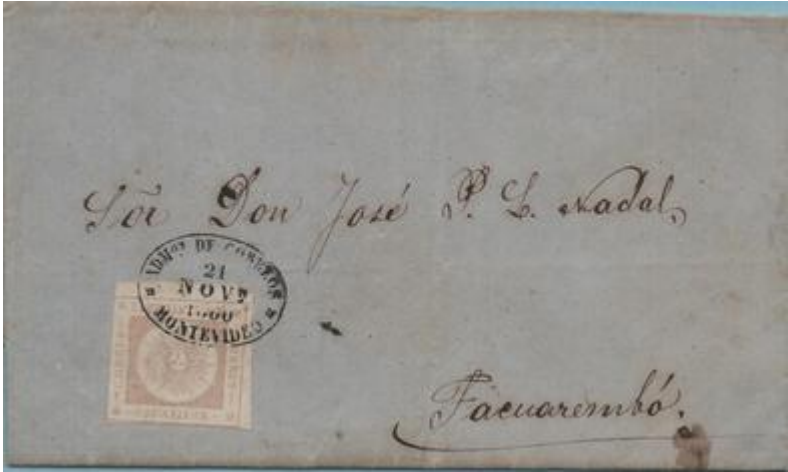 Sõr Don José P. L. Nadal,
ADMON DE CORREOS
21
NOVE
1860
MONTEVIDEO
Tacuarembó.